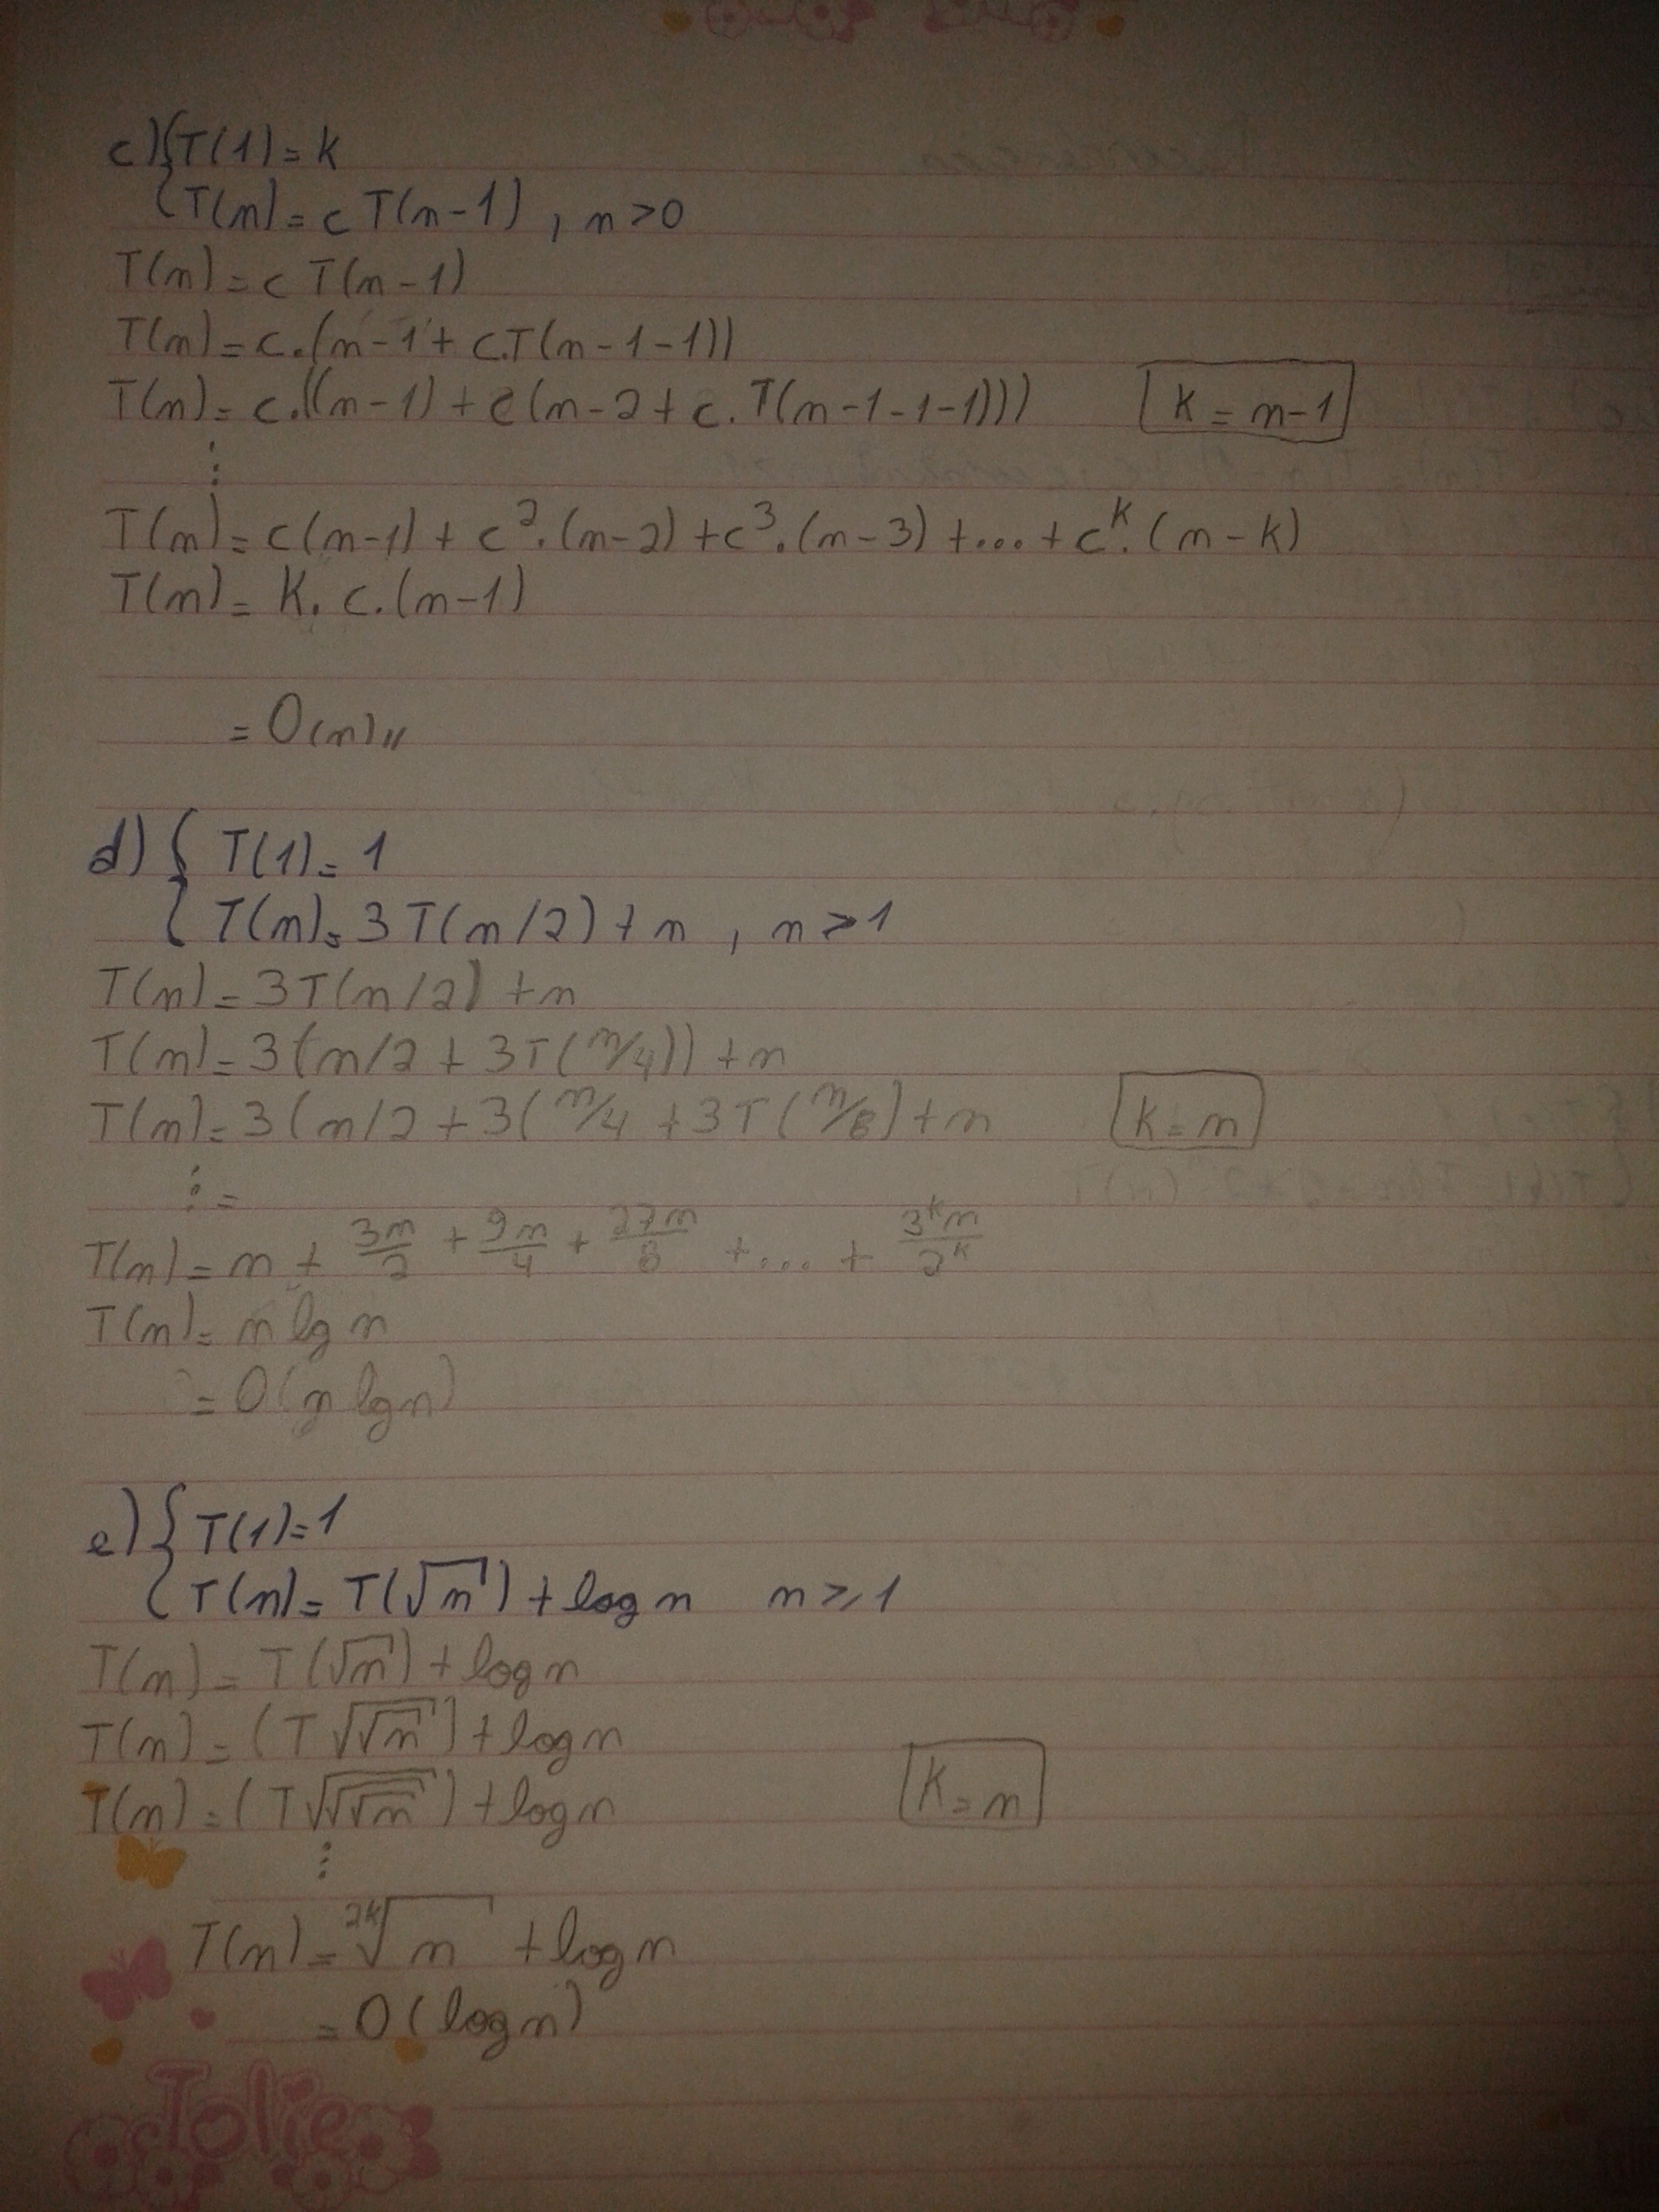 c) { T(1) = k
{ T(n) = c T(n-1) , n > 0
T(n) = c T(n-1)
T(n) = c.(n-1 + c.T(n-1-1))
T(n) = c.((n-1) + c(n-2 + c. T(n-1-1-1))) K = n-1
⋮
T(n) = c(n-1) + c².(n-2) + c³.(n-3) + ... + c^k.(n-k)
T(n) = K. c.(n-1)
= O(n)//
d) { T(1) = 1
{ T(n) = 3T(n/2) + n , n > 1
T(n) = 3T(n/2) + n
T(n) = 3(n/2 + 3T(n/4)) + n
T(n) = 3(n/2 + 3(n/4 + 3T(n/8) + n K = n
⋮ =
T(n) = n + 3n/2 + 9n/4 + 27n/8 + ... + 3^k n/2^k
T(n) = n lg n
= O(n lg n)
e) { T(1) = 1
{ T(n) = T(√n) + log n n ≥ 1
T(n) = T(√n) + log n
T(n) = (T √√n) + log n
T(n) = (T √√√n) + log n K = n
⋮
T(n) = ²ᵏ√n + log n
= O(log n)
Jolie